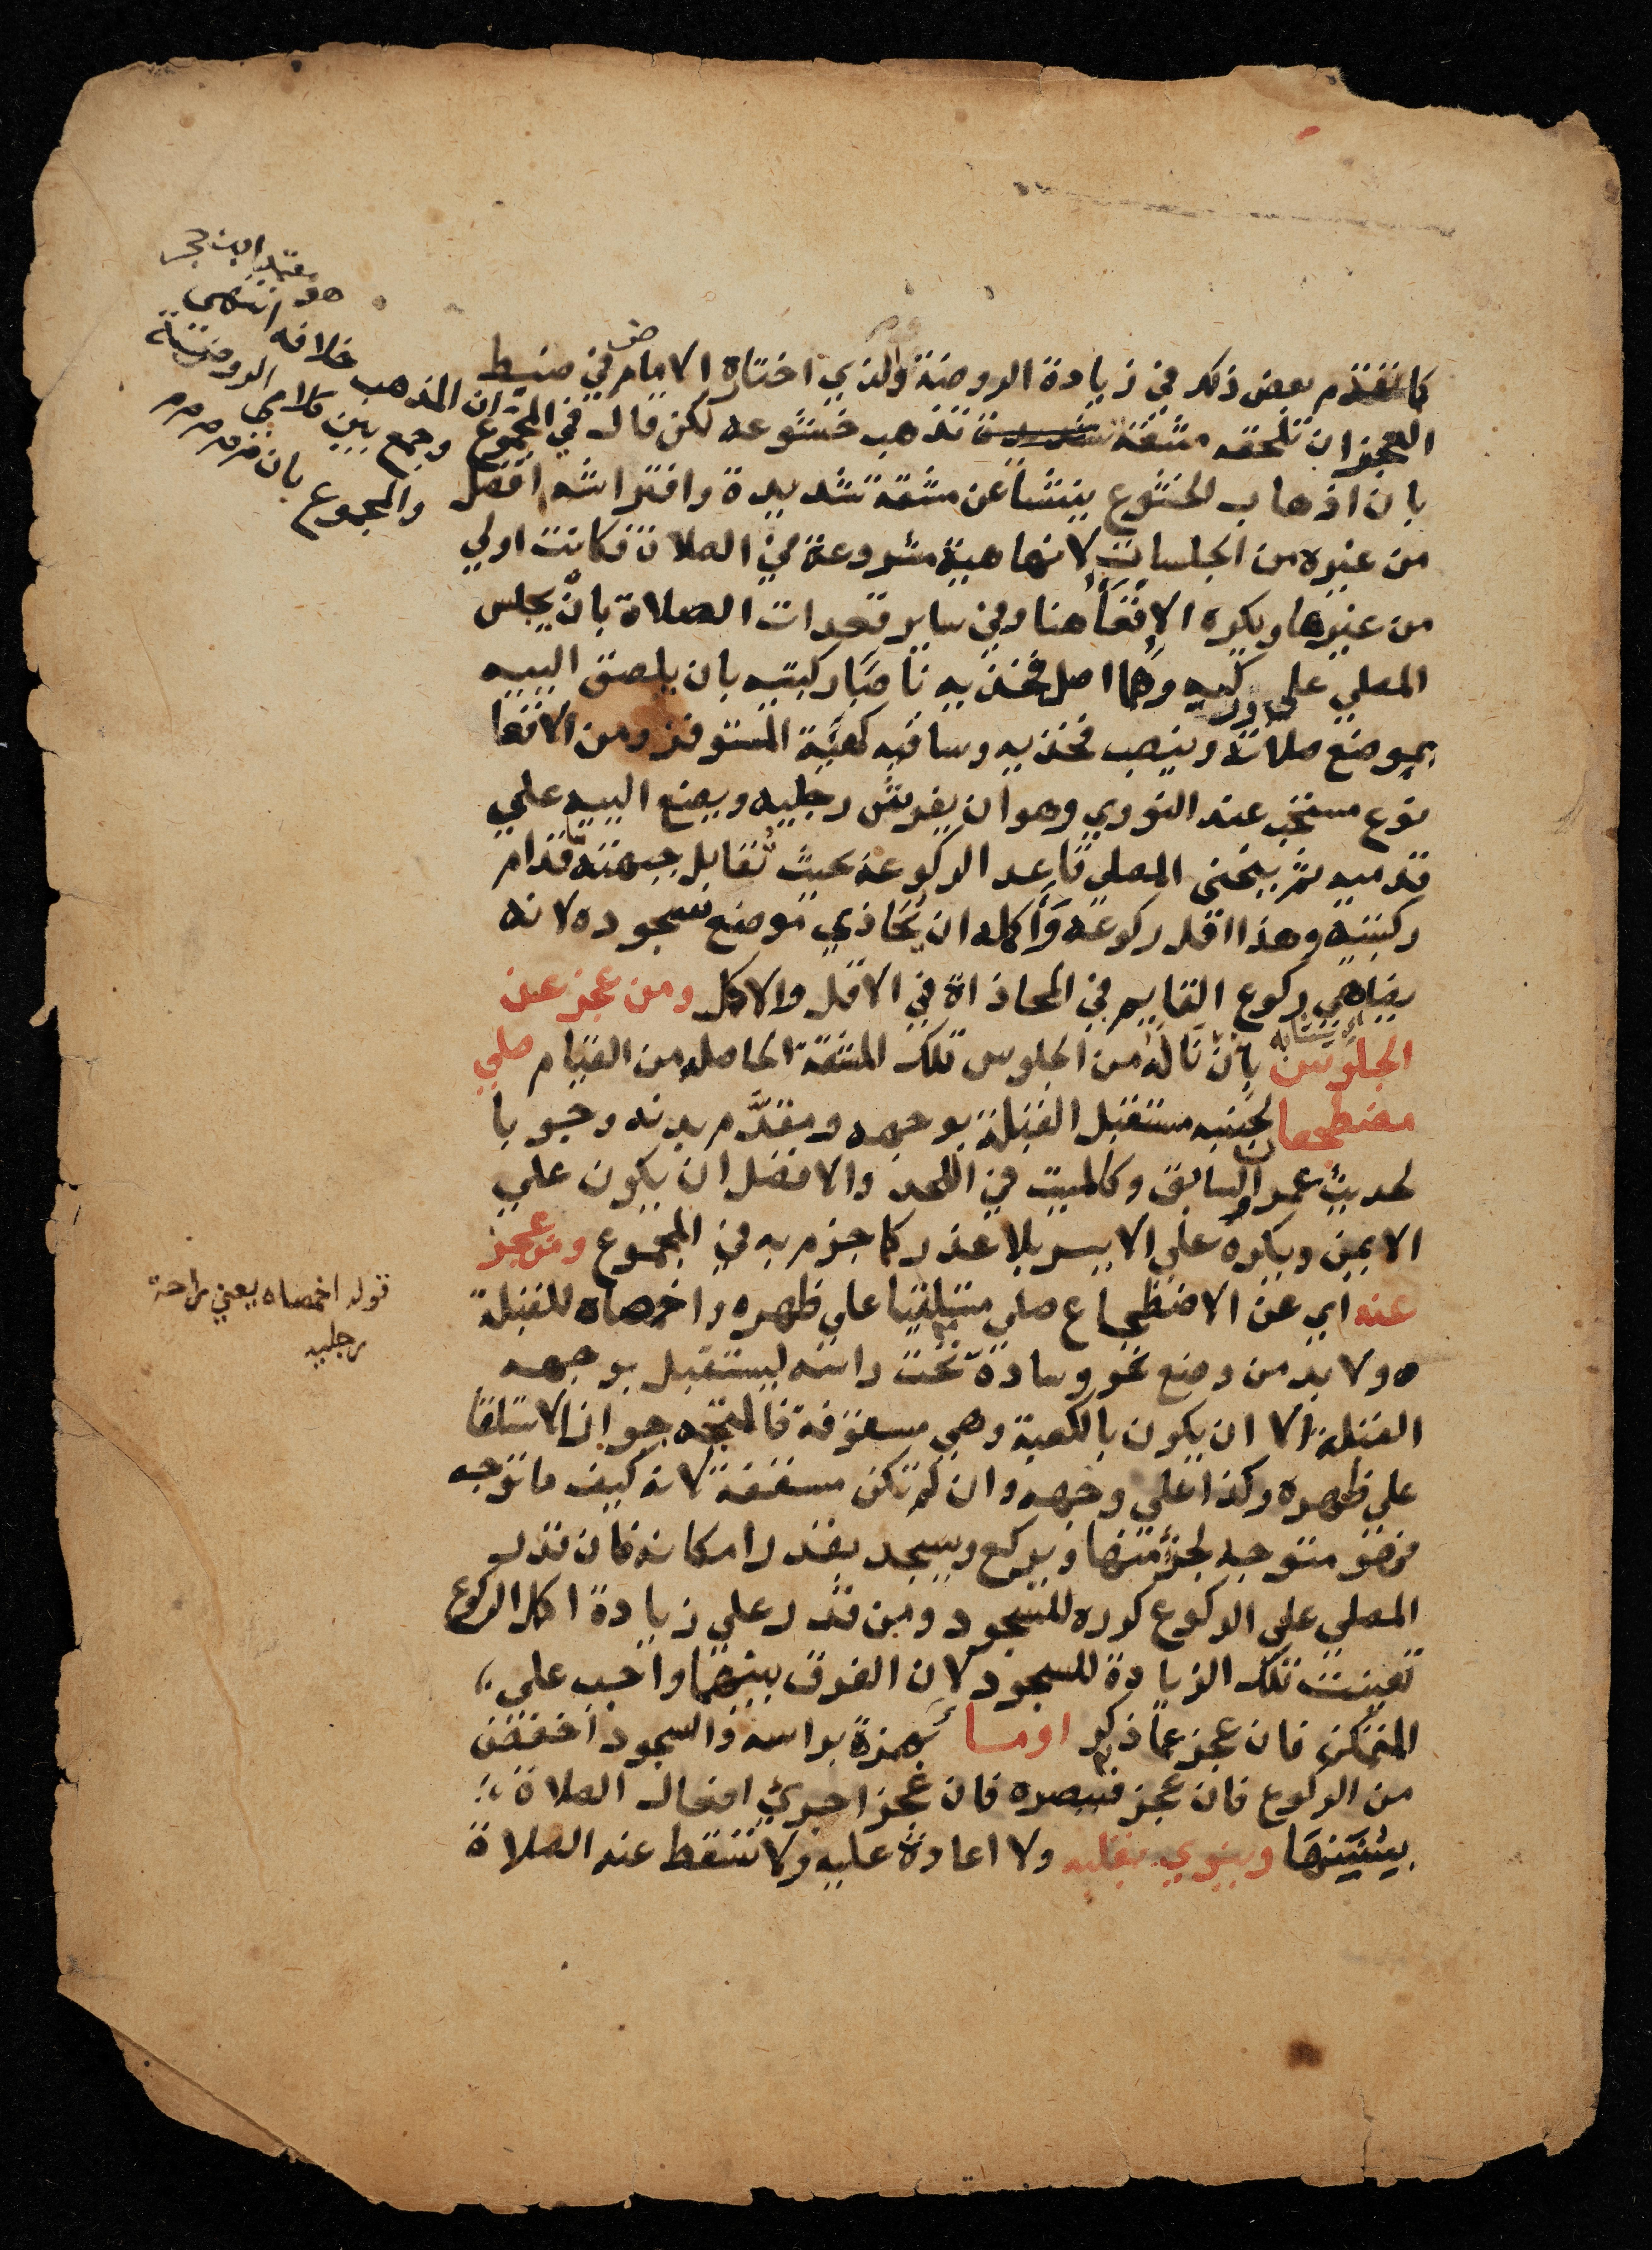 كما تقدم بعض ذلك في زيادة الروضة والذي اختاره الامام في ضبط
العجز ان تلحقه مشقة شديدة تذهب خشوعه لكن قال في المجموع ان المذهب خلافه انتهى
بان اذهاب الخشوع ينشأ عن مشقة شديدة وافتراشه افضل
من غيره من الجلسات لانها هيية مشروعة في الصلاة فكانت اولي
من غيرها ويكره الإقعَأ هنا وفي ساير قعدات الصلاة بانْ يجلس
المصلي على وركيه وهما اصل فخذيه ناصبًا ركبتيه بان يلصق الييه
بموضع صلاته وينصب فخذيه وساقيه كهيَّة المستوفز ومن الاقعا
نوع مستحب عند النووي وهو ان يفرش رجليه ويضع الييه علي
قدميه ثم ينحني المصلي قاعدا لركوعه بحيث تُقابل جبهته قدام
ركبتيه وهذا اقل ركوعه وَأكمله ان يُحَاذي موضع سجوده لانه
يضاهي ركوع القايم في المحاذاة في الاقل والاكمل ومن عجز عن
الجلوس بان نَالَهُ من الجلوس تلك المشقة الحاصله من القيام صلي
مضطجعا لجنبه مستقبل القبلة بوجهه ومقدَّم بدنه وجوبا
لحديث عمران السابق وكالميت في اللحد والافضل ان يكون علي
الايمن ويكره على الايسر بلا عذر كما جزم به في المجموع ومن عجز
عنه اي عن الاضطجاع صلي مستلقيا علي ظهره واخمصاه للقبلة
ه ولا بد من وضع نحو وسادة تحت راسه ليستقبل بوجهه
القبلة الا ان يكون بالكعبة وهي مسقوفة فالمتجه جواز الاستلقا
على ظهره وكذا علي وجهه وان لم تكن مسقفة لانه كيف ما توجه
فهو متوجه لجزء منها ويركع ويسجد بقدر امكانه فان قدر
المصلي على الركوع كرره للسجود ومن قدر علي زيادة اكمل الركوع
تعينت تلك الزيادة للسجود لان الفرق بينهما واجب على
المتمكن فان عجز عما ذكر اومــا بهمزة براسه والسجود اخفض
من الركوع فان عجز فببصره فان عجز اجري افعال الصلاة
بسُنَنِهَا وينوي بقلبه ولا اعادة عليه ولا تسقط عنه الصلاة
هو انتهى
وجمع بين كلامي الروضة
والمجموع بان
قوله اخمصاه يعني راحة
رجليه